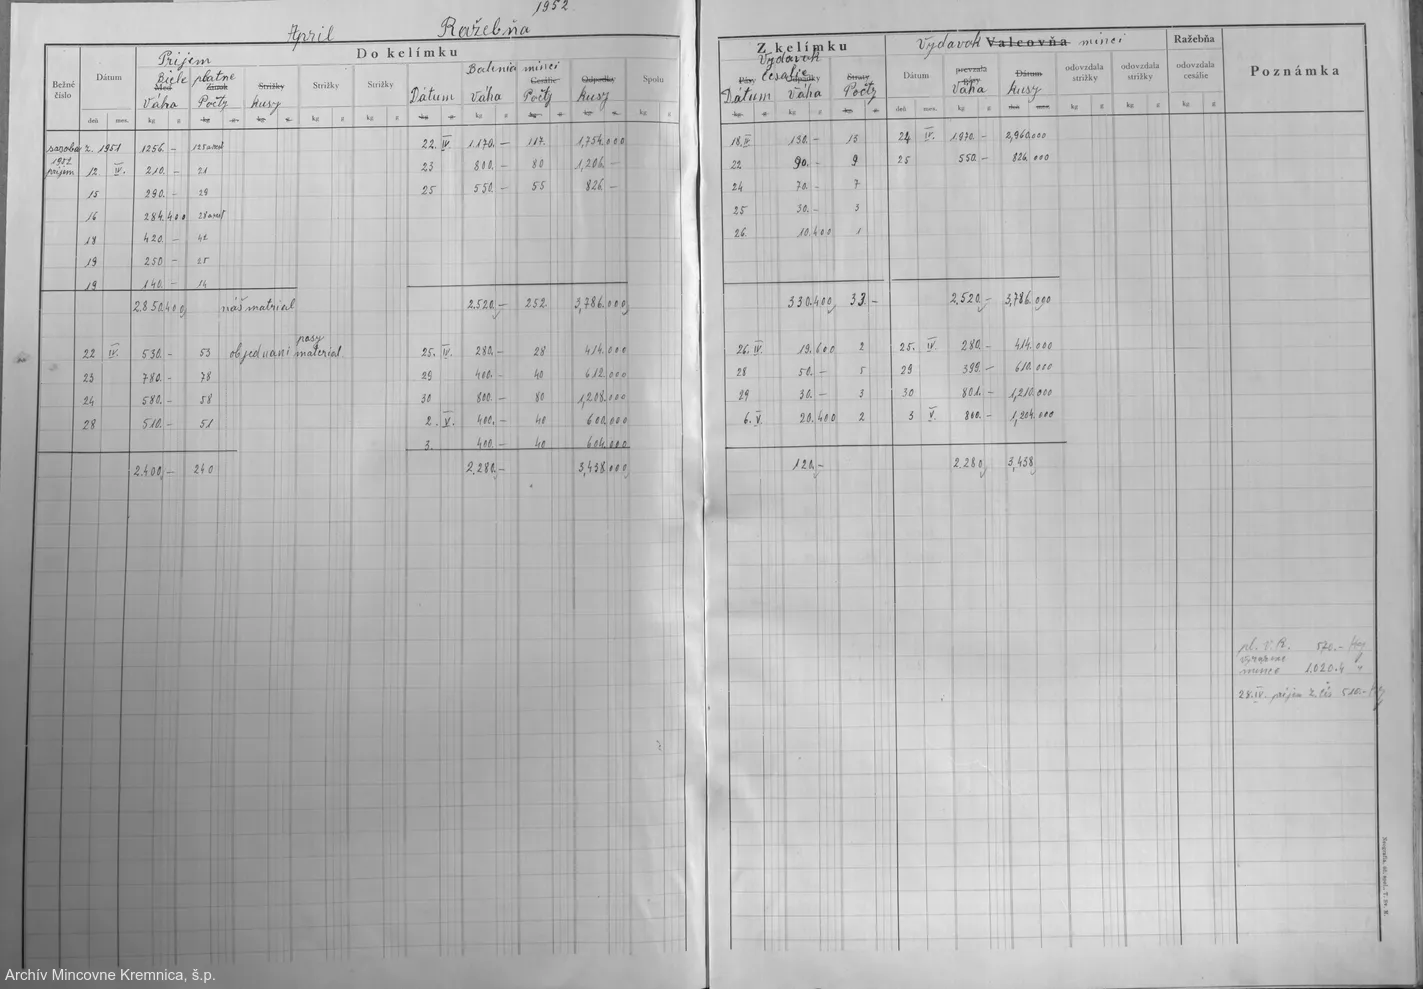 1952
April Ražebňa
Príjem Do kelímku
Bežné číslo Dátum Biele platne Balenia mincí Spolu
Med Zinok Strižky Strižky Strižky Cesálie Odpadky
Váha Počty kusy Dátum Váha Počty kusy
deň mes. kg g kg g kg g kg g kg g kg g kg g kg g kg g kg g
z. 1951 1256.- 22. IV. 1.170.- 117. 1,754.000
1952
príjem 12 IV. 210.- 21 23 800.- 80 1,206.-
15 290.- 29 25 550.- 55 826.-
16 284.400
18 420.- 42
19 250 - 25
19 140.- 14
2.850.400 náš matrial 2.520.- 252 3,786.000
pasy
22 IV. 530.- 53 objednani material 25. IV. 280.- 28 414.000
23 780.- 78 29 400.- 40 612.000
24 580.- 58 30 800.- 80 1,208.000
28 510.- 51 2. V. 400.- 40 600.000
3. 400.- 40 604.000
2.400.- 240 2.280.- 3,438.000
Z kelímku Výdavok Valcovňa mincí Ražebňa
Výdavok
cesálie
Pásy Odpadky Straty Dátum prevzala pásy Dátum odovzdala strižky odovzdala strižky odovzdala cesálie Poznámka
Dátum Váha Počty Váha kusy
kg g kg g kg g deň mes. kg g deň mes. kg g kg g kg g
18. IV 130.- 13 24 IV. 1.970.- 2,960.000
22 90.- 9 25 550.- 826.000
24 70.- 7
25 30.- 3
26. 10.400 1
330.400 33 - 2,520.- 3,786.000
26. IV. 19.600 2 25. IV. 280.- 414.000
28 50.- 5 29 399.- 610.000
29 30.- 3 30 801.- 1,210.000
6. V. 20.400 2 3 V. 800.- 1,204.000
120.- 2.280 3,438
570.-
1.020.4
28. IV. príjem 510.-
Archív Mincovne Kremnica, š.p.